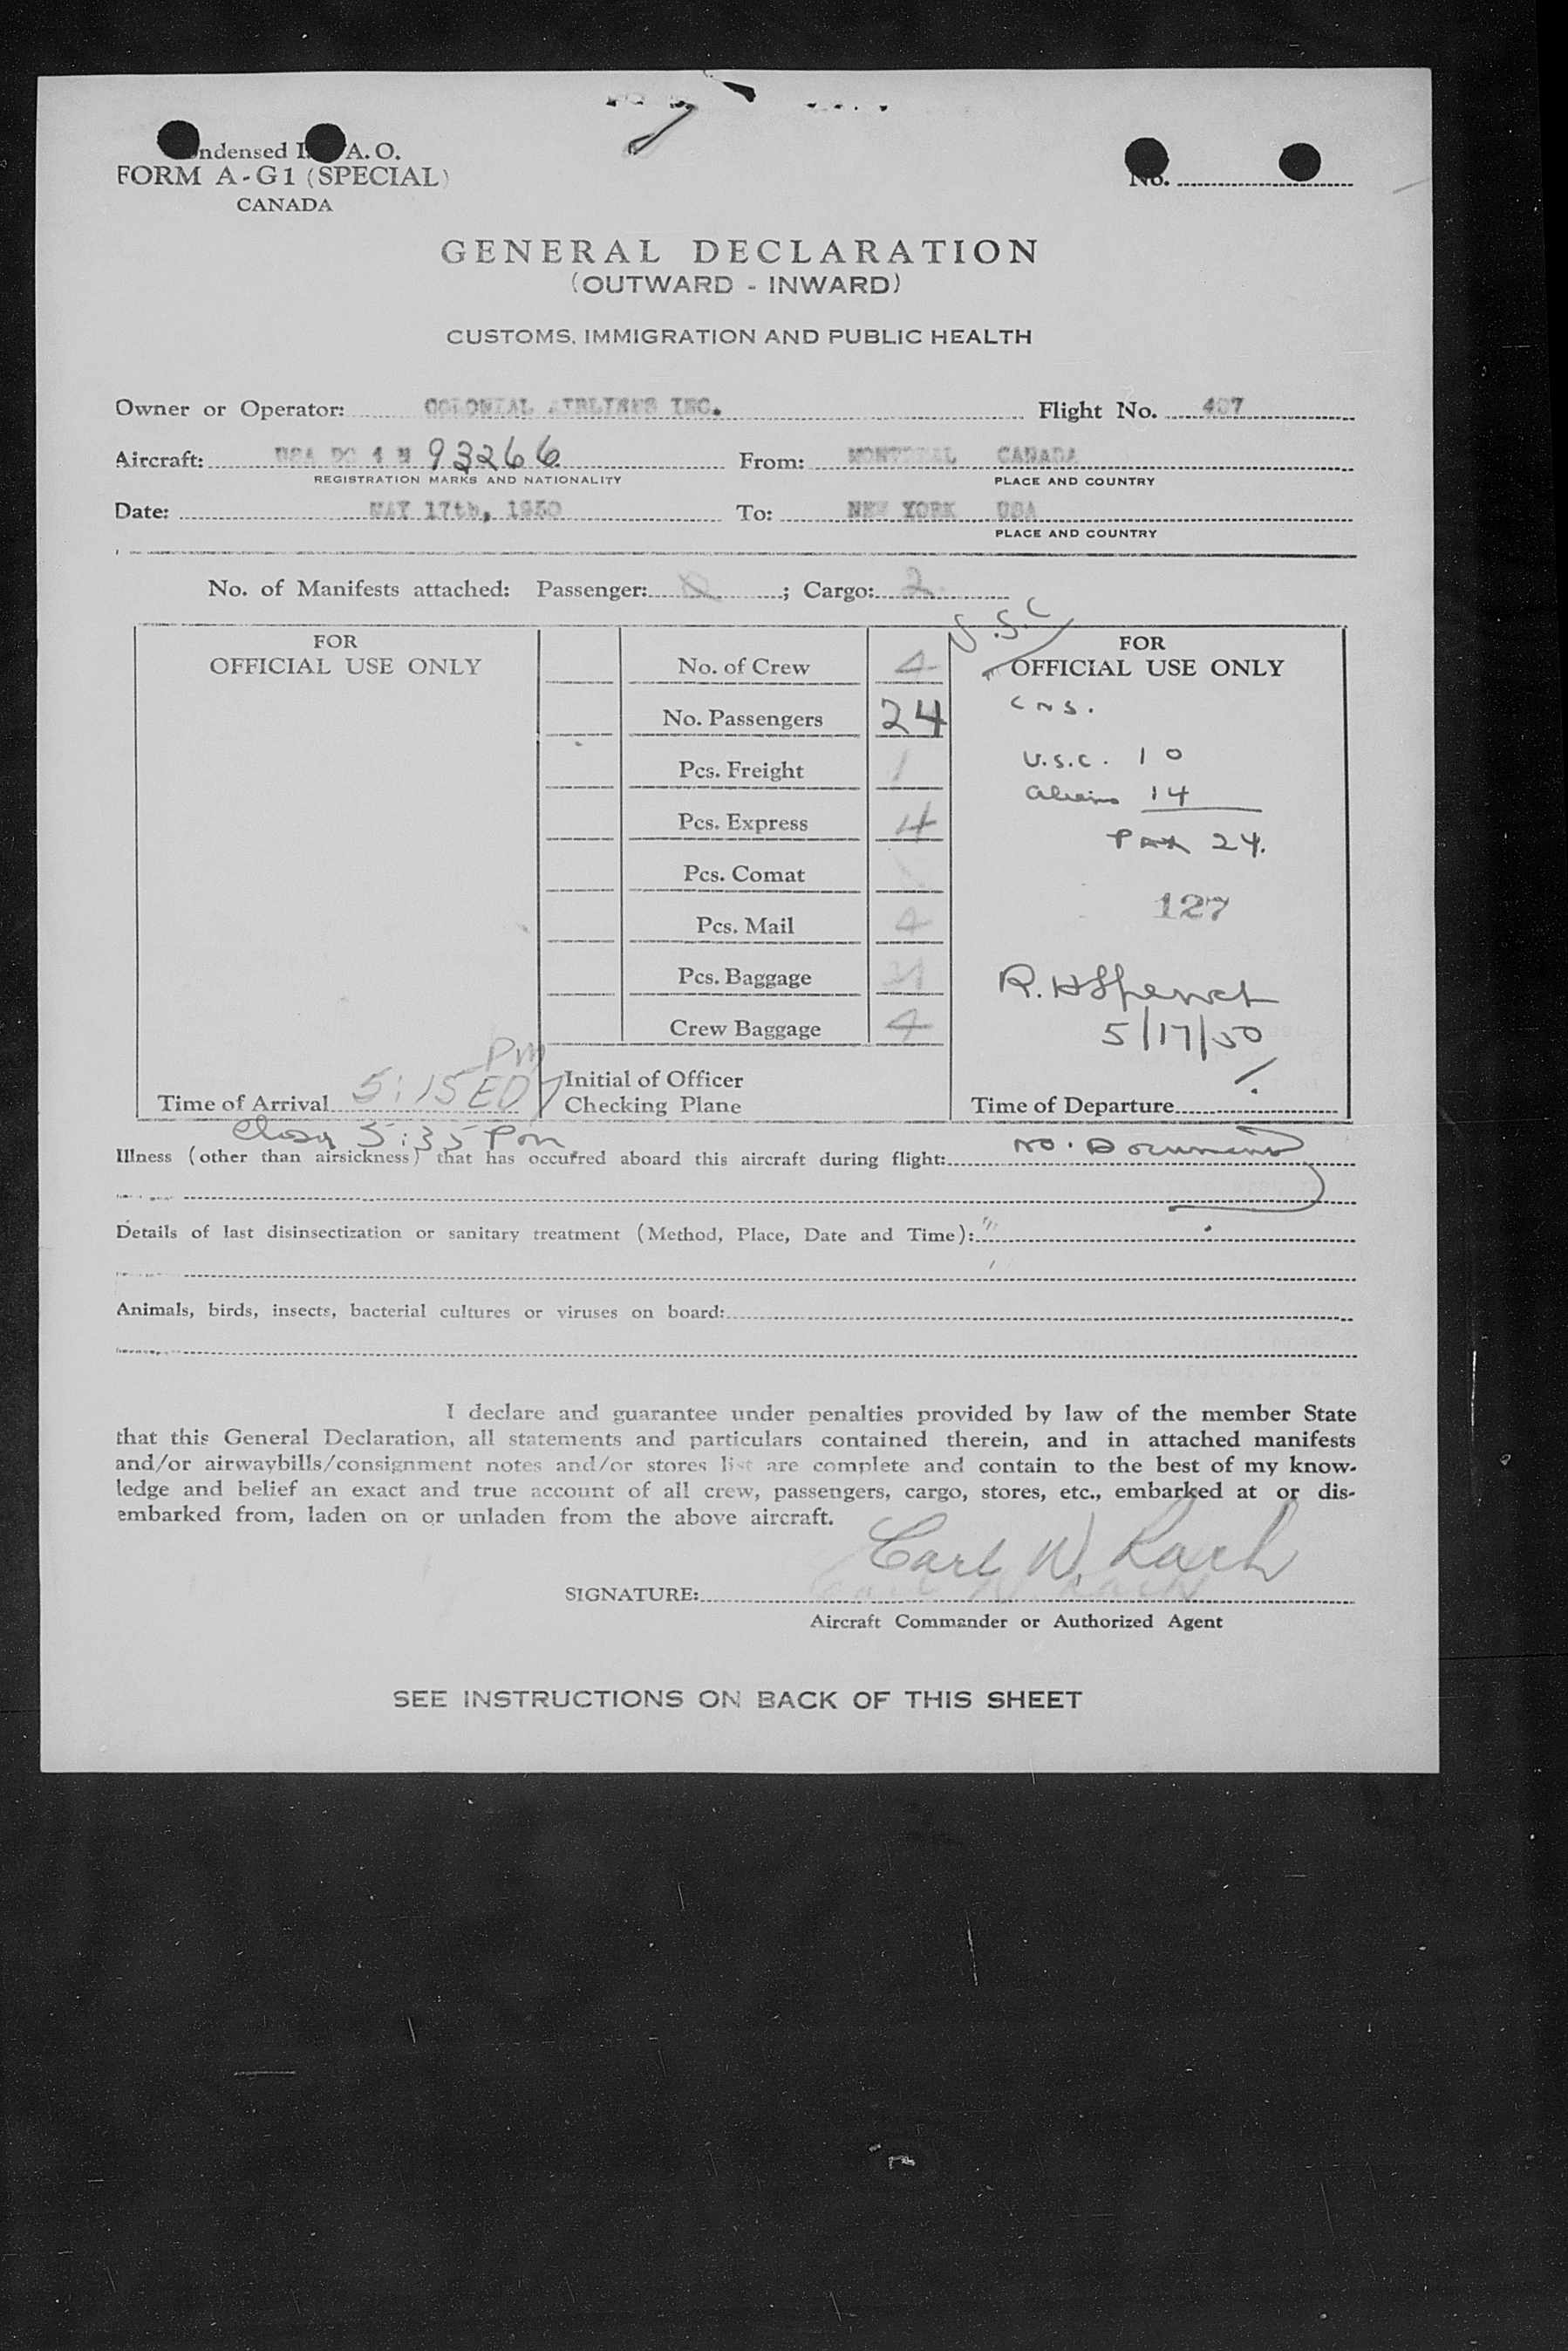 ndensed I. A. O.
FORM A-G1 (SPECIAL)
CANADA
No.
GENERAL DECLARATION
(OUTWARD - INWARD)
CUSTOMS, IMMIGRATION AND PUBLIC HEALTH
Owner or Operator: COLONIAL AIRLINES INC. Flight No. 457
Aircraft: USA DC 4 N 93266 From: MONTREAL CANADA
REGISTRATION MARKS AND NATIONALITY PLACE AND COUNTRY
Date: MAY 17th, 1950 To: NEW YORK USA
PLACE AND COUNTRY
No. of Manifests attached: Passenger: ; Cargo: 2
FOR
OFFICIAL USE ONLY
No. of Crew 4
No. Passengers 24
Pcs. Freight 1
Pcs. Express 4
Pcs. Comat
Pcs. Mail 4
Pcs. Baggage
Crew Baggage 4
Initial of Officer
Checking Plane
PM
Time of Arrival 5:15 EDT
U.S.C
FOR
OFFICIAL USE ONLY
U.S.C. 10
Aliens 14
PAX 24.
127
5/17/50
Time of Departure
Closed 5:35 Pm
Illness (other than airsickness) that has occurred aboard this aircraft during flight: No.
Details of last disinsectization or sanitary treatment (Method, Place, Date and Time):
Animals, birds, insects, bacterial cultures or viruses on board:
I declare and guarantee under penalties provided by law of the member State
that this General Declaration, all statements and particulars contained therein, and in attached manifests
and/or airwaybills/consignment notes and/or stores list are complete and contain to the best of my know-
ledge and belief an exact and true account of all crew, passengers, cargo, stores, etc., embarked at or dis-
embarked from, laden on or unladen from the above aircraft.
Carl W. Rach
SIGNATURE:
Aircraft Commander or Authorized Agent
SEE INSTRUCTIONS ON BACK OF THIS SHEET